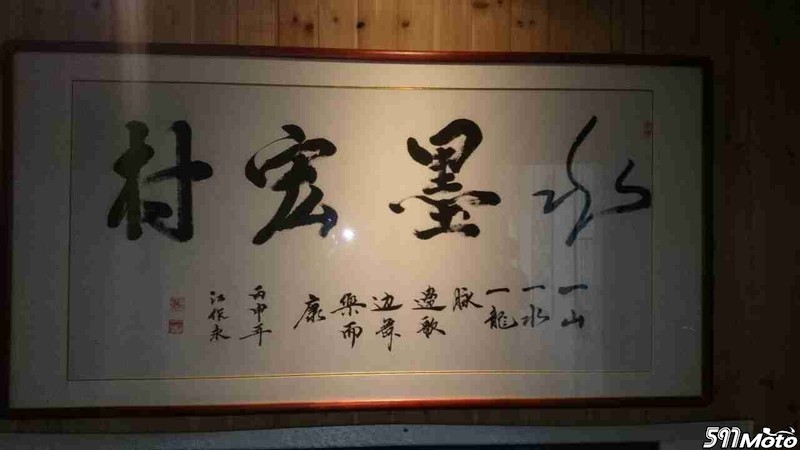 水墨宏村
一山
一水
一龍
脉
邊歌
边舞
樂而
康
丙申年
597Moto